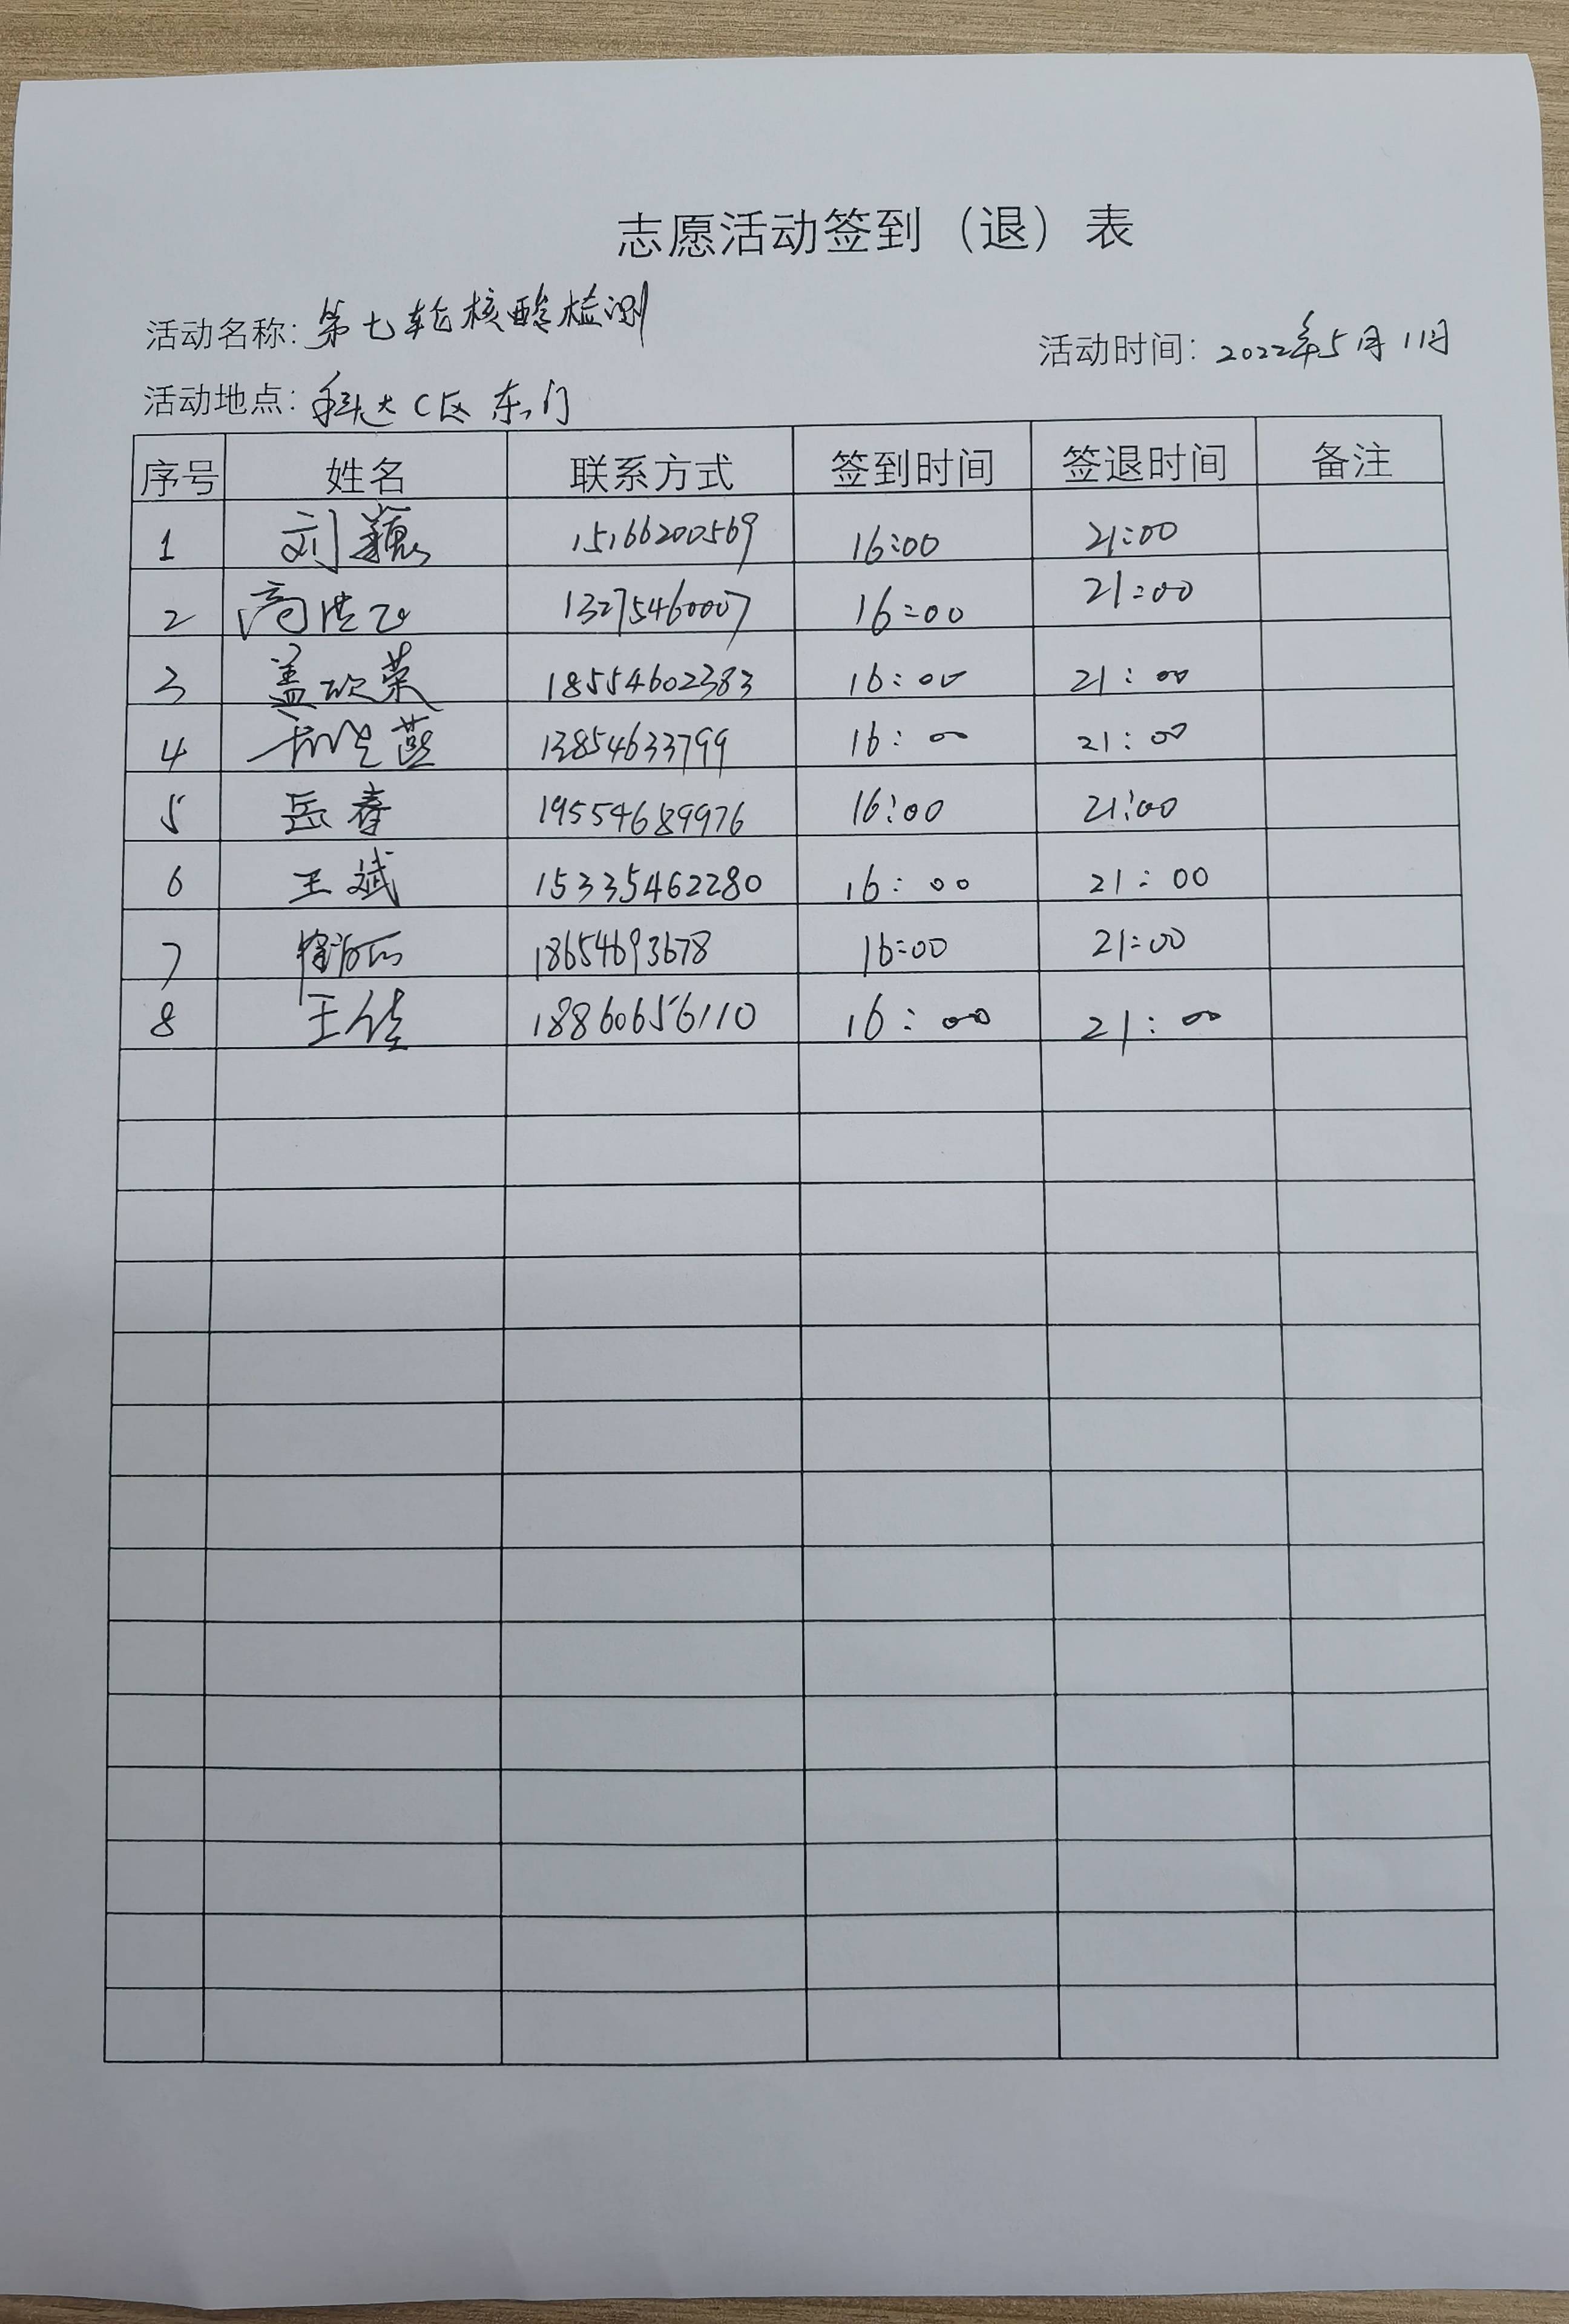 志愿活动签到（退）表
活动名称：第七轮核酸检测
活动时间：2022年5月11日
活动地点：科大C区东门
序号 姓名 联系方式 签到时间 签退时间 备注
1 刘颖 15166200569 16:00 21:00
2 13275460007 16:00 21:00
3 盖欣荣 18554602383 16:00 21:00
4 13854633799 16:00 21:00
5 岳春 19554689976 16:00 21:00
6 王斌 15335462280 16:00 21:00
7 18654693678 16:00 21:00
8 王佳 18860656110 16:00 21:00